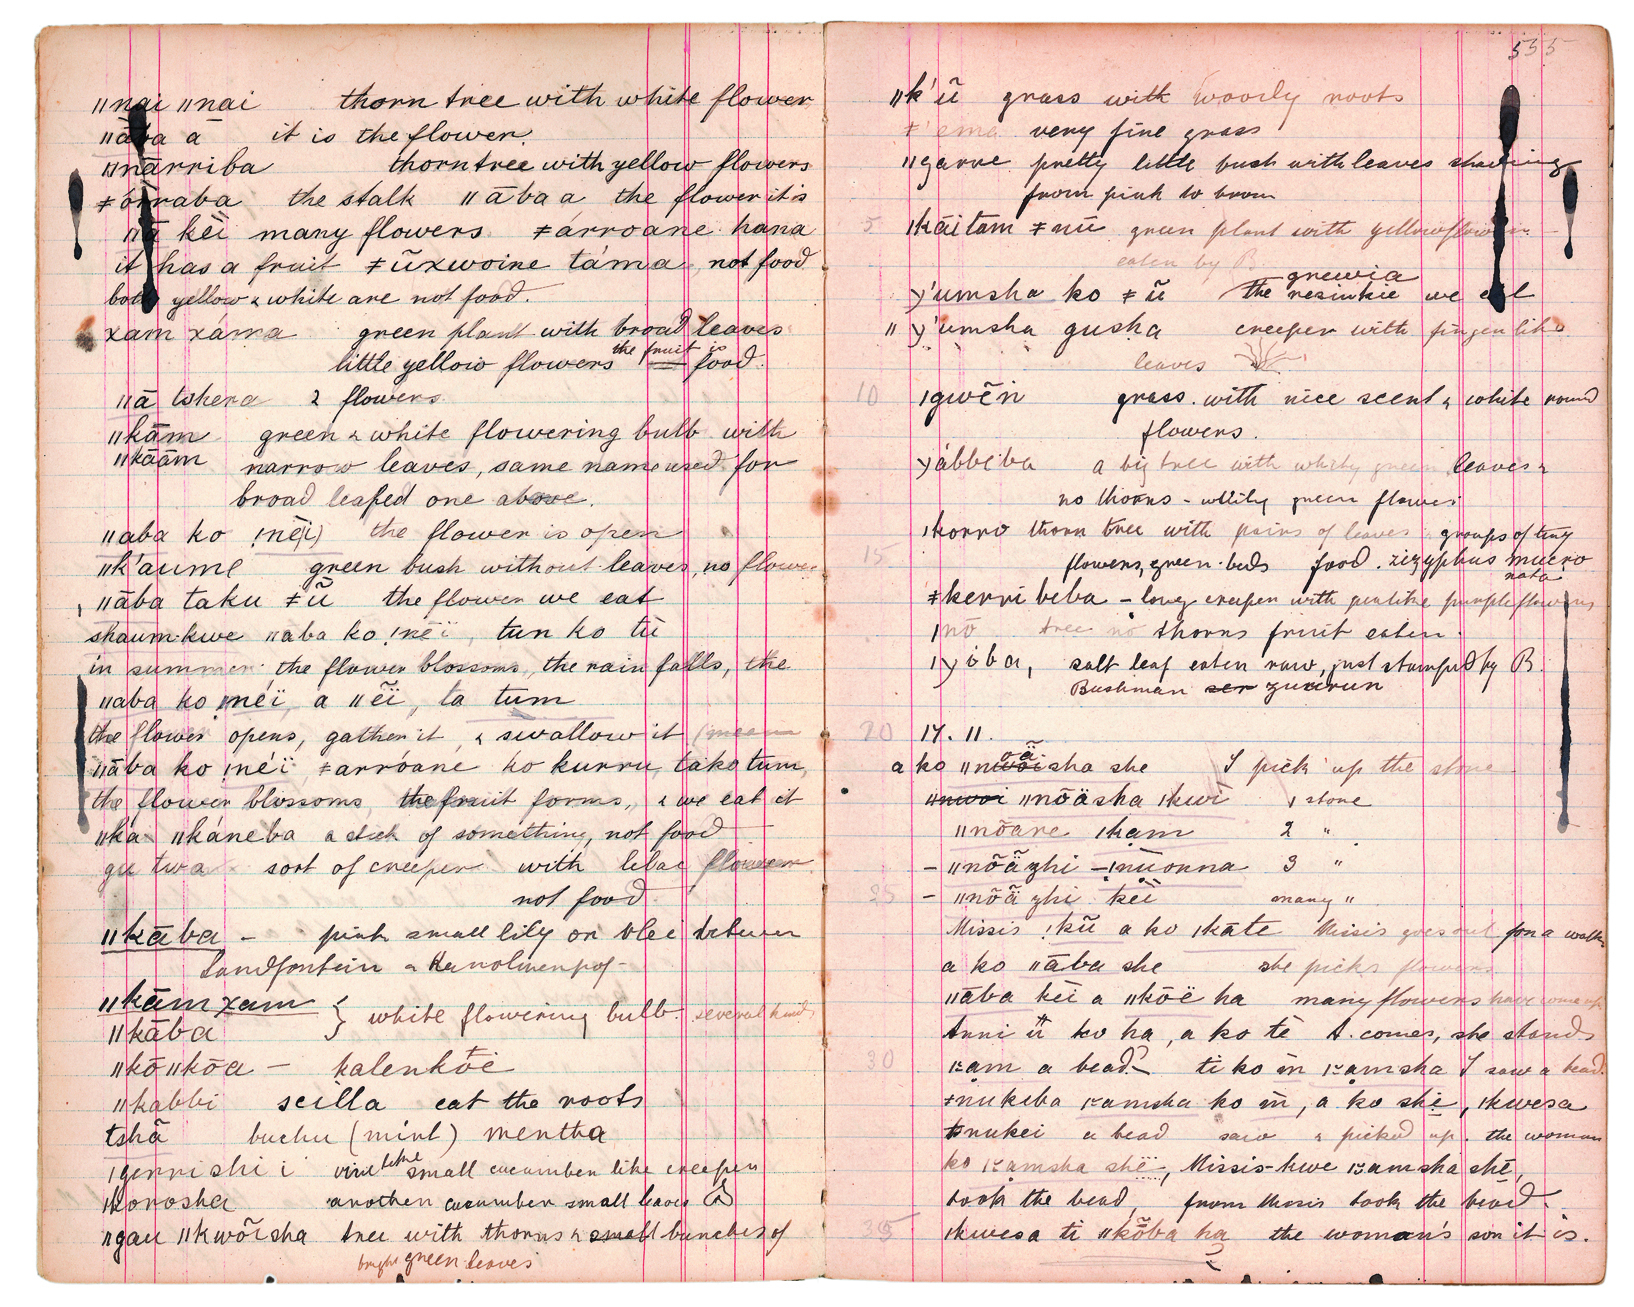 ǁnai ǁnai thorn tree with white flower
ǁāba ā it is the flower.
ǁnārriba thorn tree with yellow flowers
ǂórraba the stalk ǁāba a the flower it is
ǁā kèi many flowers. ǂárroane hana
it has a fruit ǂũxwoine táma, not food
both yellow & white are not food.
xam xáma green plant with broad leaves
little yellow flowers the fruit is food.
ǁā tshera 2 flowers
ǁkām green & white flowering bulb with
ǁkāām narrow leaves, same name used for
broad leafed one above.
ǁaba ko ǃnē(i) the flower is open
ǁk'aume green bush without leaves, no flower
ǁāba taku ǂũ the flower we eat
shaum-kwe ǁaba ko ǃnēï, tun ko tù
in summer the flower blossoms, the rain falls, the
ǁaba ko ǃnéï, a ǁẽï, ta tum
the flower opens, gather it, & swallow it
ǁāba ko ǃnéï ǂarróane ko kurru, tako tum,
the flower blossoms the fruit forms, & we eat it
ǁká ǁkáneba a stick of something, not food
gu twa sort of creeper with lilac flower
not food
ǁkāba – pink small lily on vlei between
Sandfontein &
ǁkām xam
ǁkāba } white flowering bulb. several kinds
ǁkōǁkōa – kalenkōe
ǁkabbi scilla eat the roots
tshā buchu (mint) mentha
ǀgerrishi i vine like small cucumber like creeper
ǀkorosha another cucumber small leaves
ǁgau ǁkwõisha tree with thorns & small bunches of
bright green leaves
555
ǁk'ũ grass with woody roots
ǂ'ema very fine grass
ǁgarre pretty little bush with leaves shading
from pink to brown
5 ǀkāitam ǂnū green plant with yellow flowers
eaten by B.
grewia
y'umsha ko ǂũ the resinkie we eat
ǁ y'umsha gusha creeper with finger like
leaves
10 ǀgwēn grass with nice scent & white round
flowers.
yábbeba a big tree with whity green leaves &
no thorns - whity green flower
ǀkorro thorn tree with pairs of leaves, groups of tiny
15 flowers, green buds food. zizyphus mucro
nata
ǂkerri beba – long creeper with pealike purple flowers
ǀnō tree no thorns fruit eaten.
ǀyóba, salt leaf eaten raw, just stamped by B.
Bushman
20 17. 11.
a ko ǁnõãsha she I pick up the stone
ǁnwoi ǁnõäsha ǀkwi 1 stone
ǁnōare ǀkam 2 "
– ǁnõãzhi – ǃnuonna 3 "
25 – ǁnõãzhi kèi many "
Missis ǃkũ a ko ǀkāte Missis goes out for a walk
a ko ǁāba she she picks flowers
ǁāba kèi a ǁkōë ha many flowers have come up
Anni ũ ko ha, a ko tē A. comes, she stands
30 am a bead ti ko m̄ amsha I saw a bead
ǂnukeba amsha ko m̄, a ko shē, ǀkwesa
tnukei a bead saw & picked up. the woman
ko amsha shē, Missis-kwe amsha shē,
took the bead, from Missis took the bead.
35 ǀkwesa ti ǁkõba ha the woman's son it is.